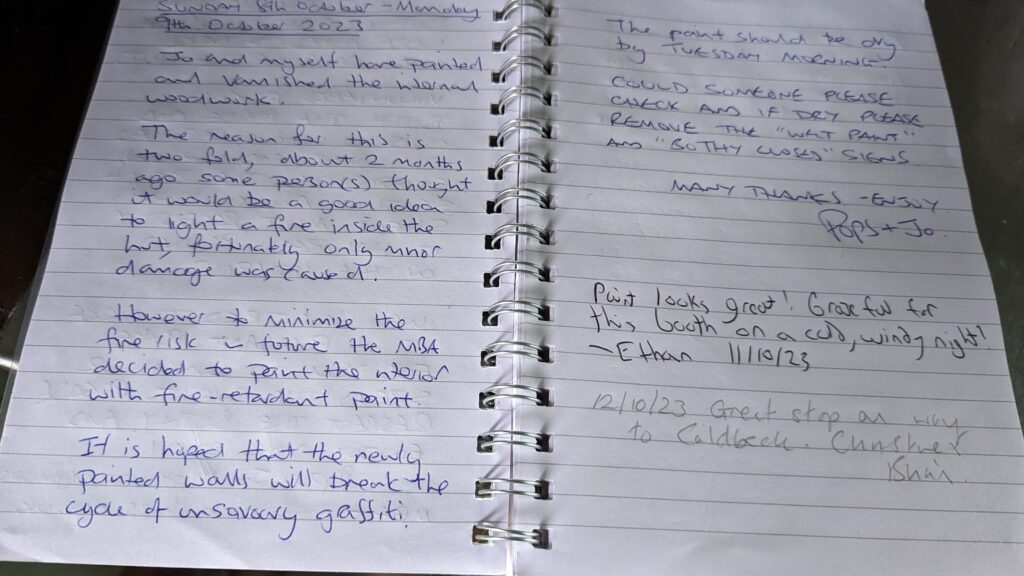 SUNDAY 8th October - Monday
9th October 2023
Jo and myself have painted
and varnished the internal
woodwork.
The reason for this is
two fold, about 2 months
ago some person(s) thought
it would be a good idea
to light a fire inside the
hut, fortunately only minor
damage was caused.
However to minimize the
fire risk in future the MBA
decided to paint the interior
with fire-retardant paint.
It is hoped that the newly
painted walls will break the
cycle of unsavoury graffiti.
The paint should be dry
by TUESDAY MORNING
COULD SOMEONE PLEASE
CHECK AND IF DRY PLEASE
REMOVE THE "WET PAINT"
AND "BOTHY CLOSED" SIGNS
MANY THANKS - ENJOY
Pops + Jo.
Paint looks great! Grateful for
this booth on a cold, windy night!
~Ethan 11/10/23
12/10/23 Great stop on way
to Caldbeck.